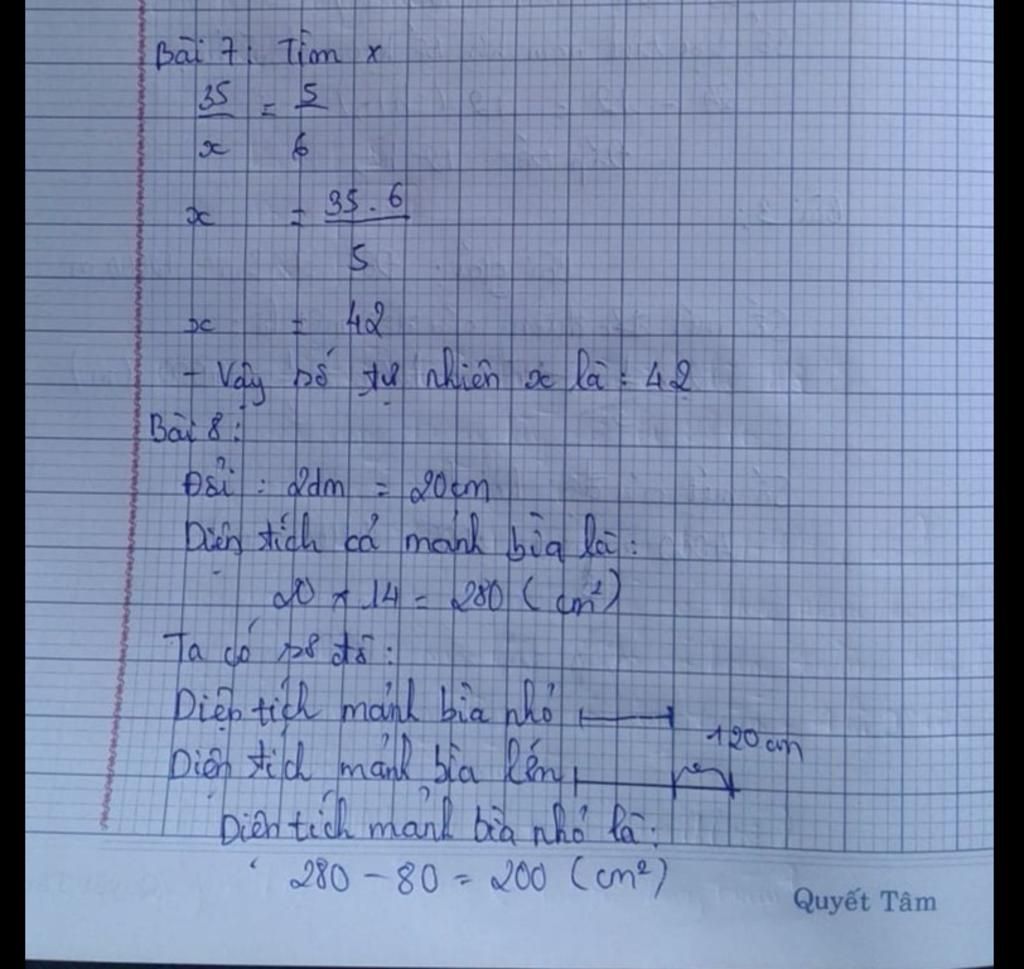 Bài 7: Tìm x
35/x = 5/6
x = 35.6/5
x = 42
- Vậy số tự nhiên x là: 42
Bài 8:
Đổi: 2dm = 20cm
Diện tích cả mảnh bìa là:
20 x 14 = 280 (cm²)
Ta có sơ đồ:
Diện tích mảnh bìa nhỏ
120cm
Diện tích mảnh bìa lớn
Diện tích mảnh bìa nhỏ là:
280 - 80 = 200 (cm²)
Quyết Tâm